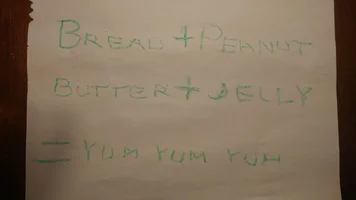 BREAD + PEANUT
BUTTER + JELLY
= YUM YUM YUM